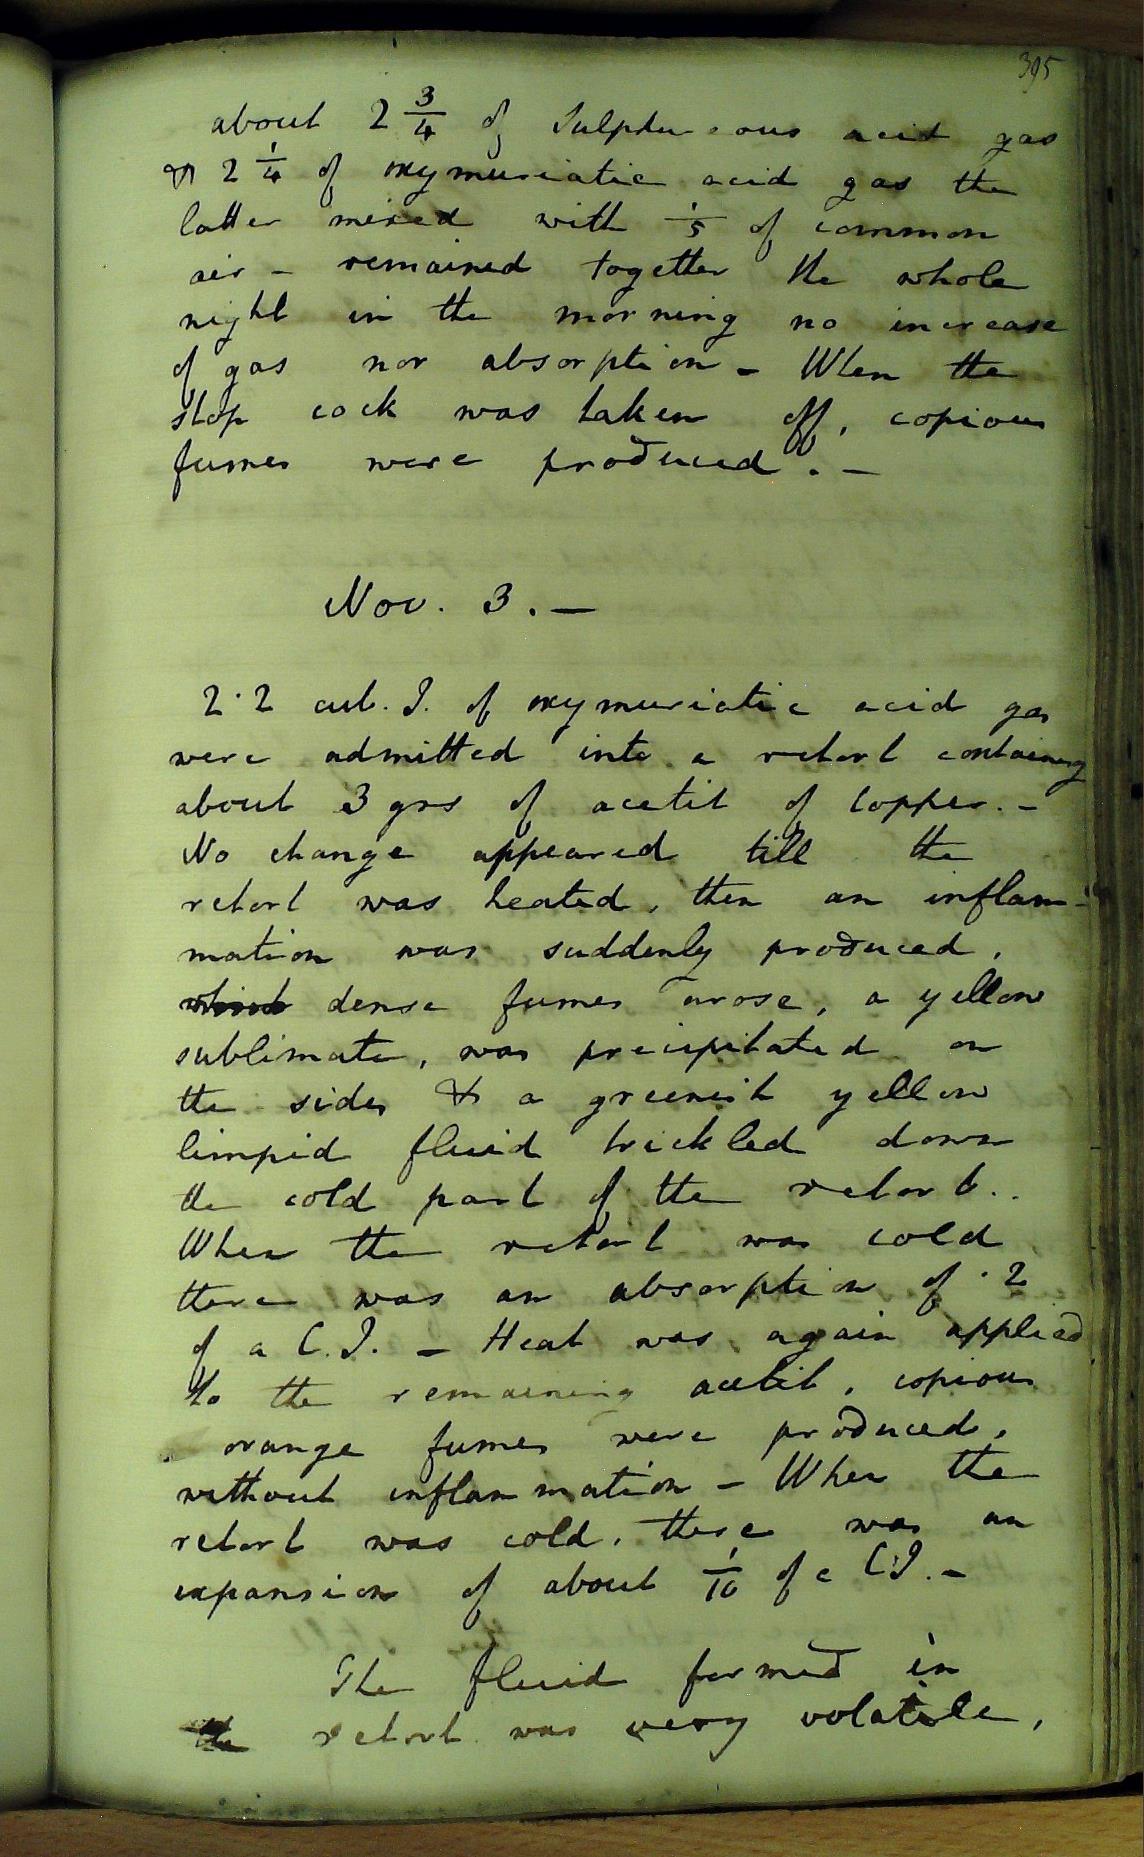 395
about 2 3/4 of Sulphureous acid gas
& 2 1/4 of oxymuriatic acid gas the
latter mixed with 1/5 of common
air - remained together the whole
night in the morning no increase
of gas nor absorption - When the
stop cock was taken off, copious
fumes were produced. -
Nov. 3. -
2·2 cub. I. of oxymuriatic acid gas
were admitted into a retort containing
about 3 grs of acetit of Copper. -
No change appeared till the
retort was heated, then an inflam-
mation was suddenly produced,
which dense fumes arose, a yellow
sublimate, was precipitated on
the sides & a greenish yellow
limpid fluid trickled down
the cold part of the retort..
When the retort was cold
there was an absorption of ·2
of a C.I. - Heat was again applied
to the remaining acetit, copious
orange fumes were produced,
without inflammation - When the
retort was cold, there was an
expansion of about 1/10 of a C.I. -
The fluid formed in
the retort was very volatile,